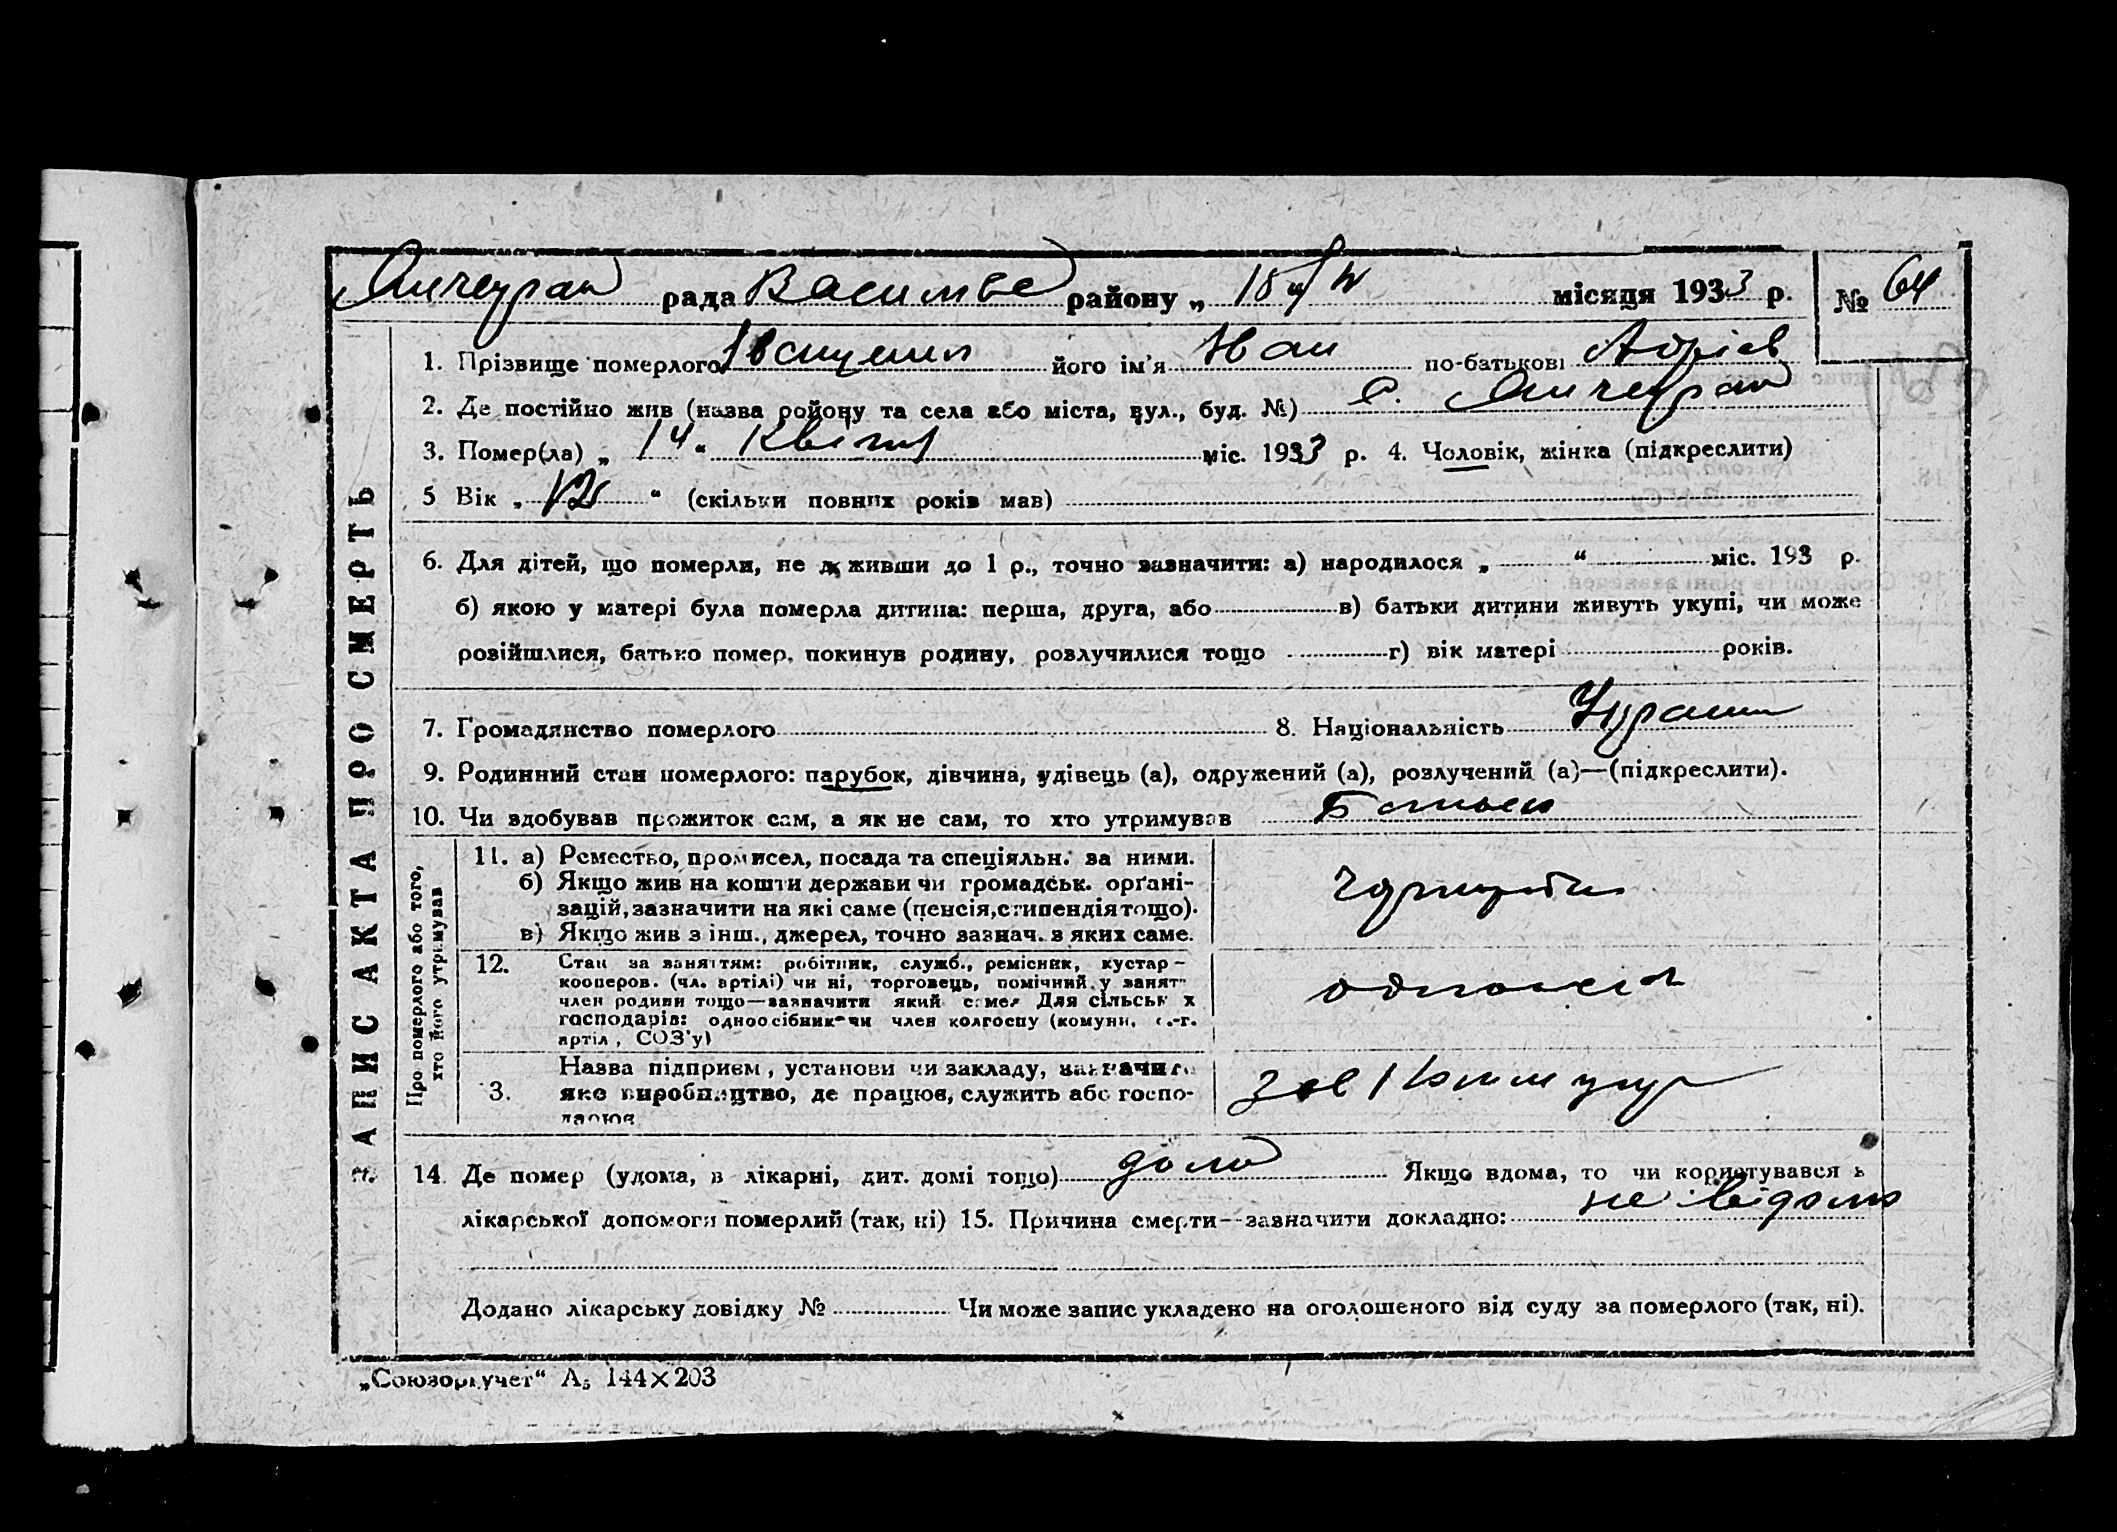 рада району „ 18 " IV місяця 1933 р. № 64
ЗАПИС АКТА ПРО СМЕРТЬ
1. Прізвище померлого його ім'я Иван по-батькові
2. Де постійно жив (назва району та села або міста, вул., буд. №) с.
3. Помер(ла) „ 14 " Квітня міс. 1933 р. 4. Чоловік, жінка (підкреслити)
5 Вік „ 12 " (скільки повних років мав)
6. Для дітей, що померли, не живши до 1 р., точно зазначити: а) народилося „ " міс. 193 р.
б) якою у матері була померла дитина: перша, друга, або в) батьки дитини живуть укупі, чи може
розійшлися, батько помер, покинув родину, розлучилися тощо г) вік матері років.
7. Громадянство померлого 8. Національність
9. Родинний стан померлого: парубок, дівчина, удівець (а), одружений (а), розлучений (а)—(підкреслити).
10. Чи здобував прожиток сам, а як не сам, то хто утримував
Про померлого або того,
хто його утримував
11. а) Ремество, промисел, посада та спеціяльн. за ними.
б) Якщо жив на кошти держави чи громадськ. орґані-
зацій, зазначити на які саме (пенсія, стипендія тощо).
в) Якщо жив з інш., джерел, точно зазнач. з яких саме.
12. Стан за заняттям: робітник, служб., ремісник, кустар-
кооперов. (чл. артілі) чи ні, торговець, помічний у занят
член родини тощо—зазначити який саме Для сільськ х
господарів: одноосібник чи член колгоспу (комуни, с.-г.
артіл, СОЗ'у)
Назва підприєм, установи чи закладу, зазначите
3. яке виробництво, де працює, служить або госпо-
дарює
14. Де помер (удома, в лікарні, дит. домі тощо) дома Якщо вдома, то чи користувався з
лікарської допомоги померлий (так, ні) 15. Причина смерти—зазначити докладно: не відомо
Додано лікарську довідку № Чи може запис укладено на оголошеного від суду за померлого (так, ні).
„Союзоргучет" А5 144×203